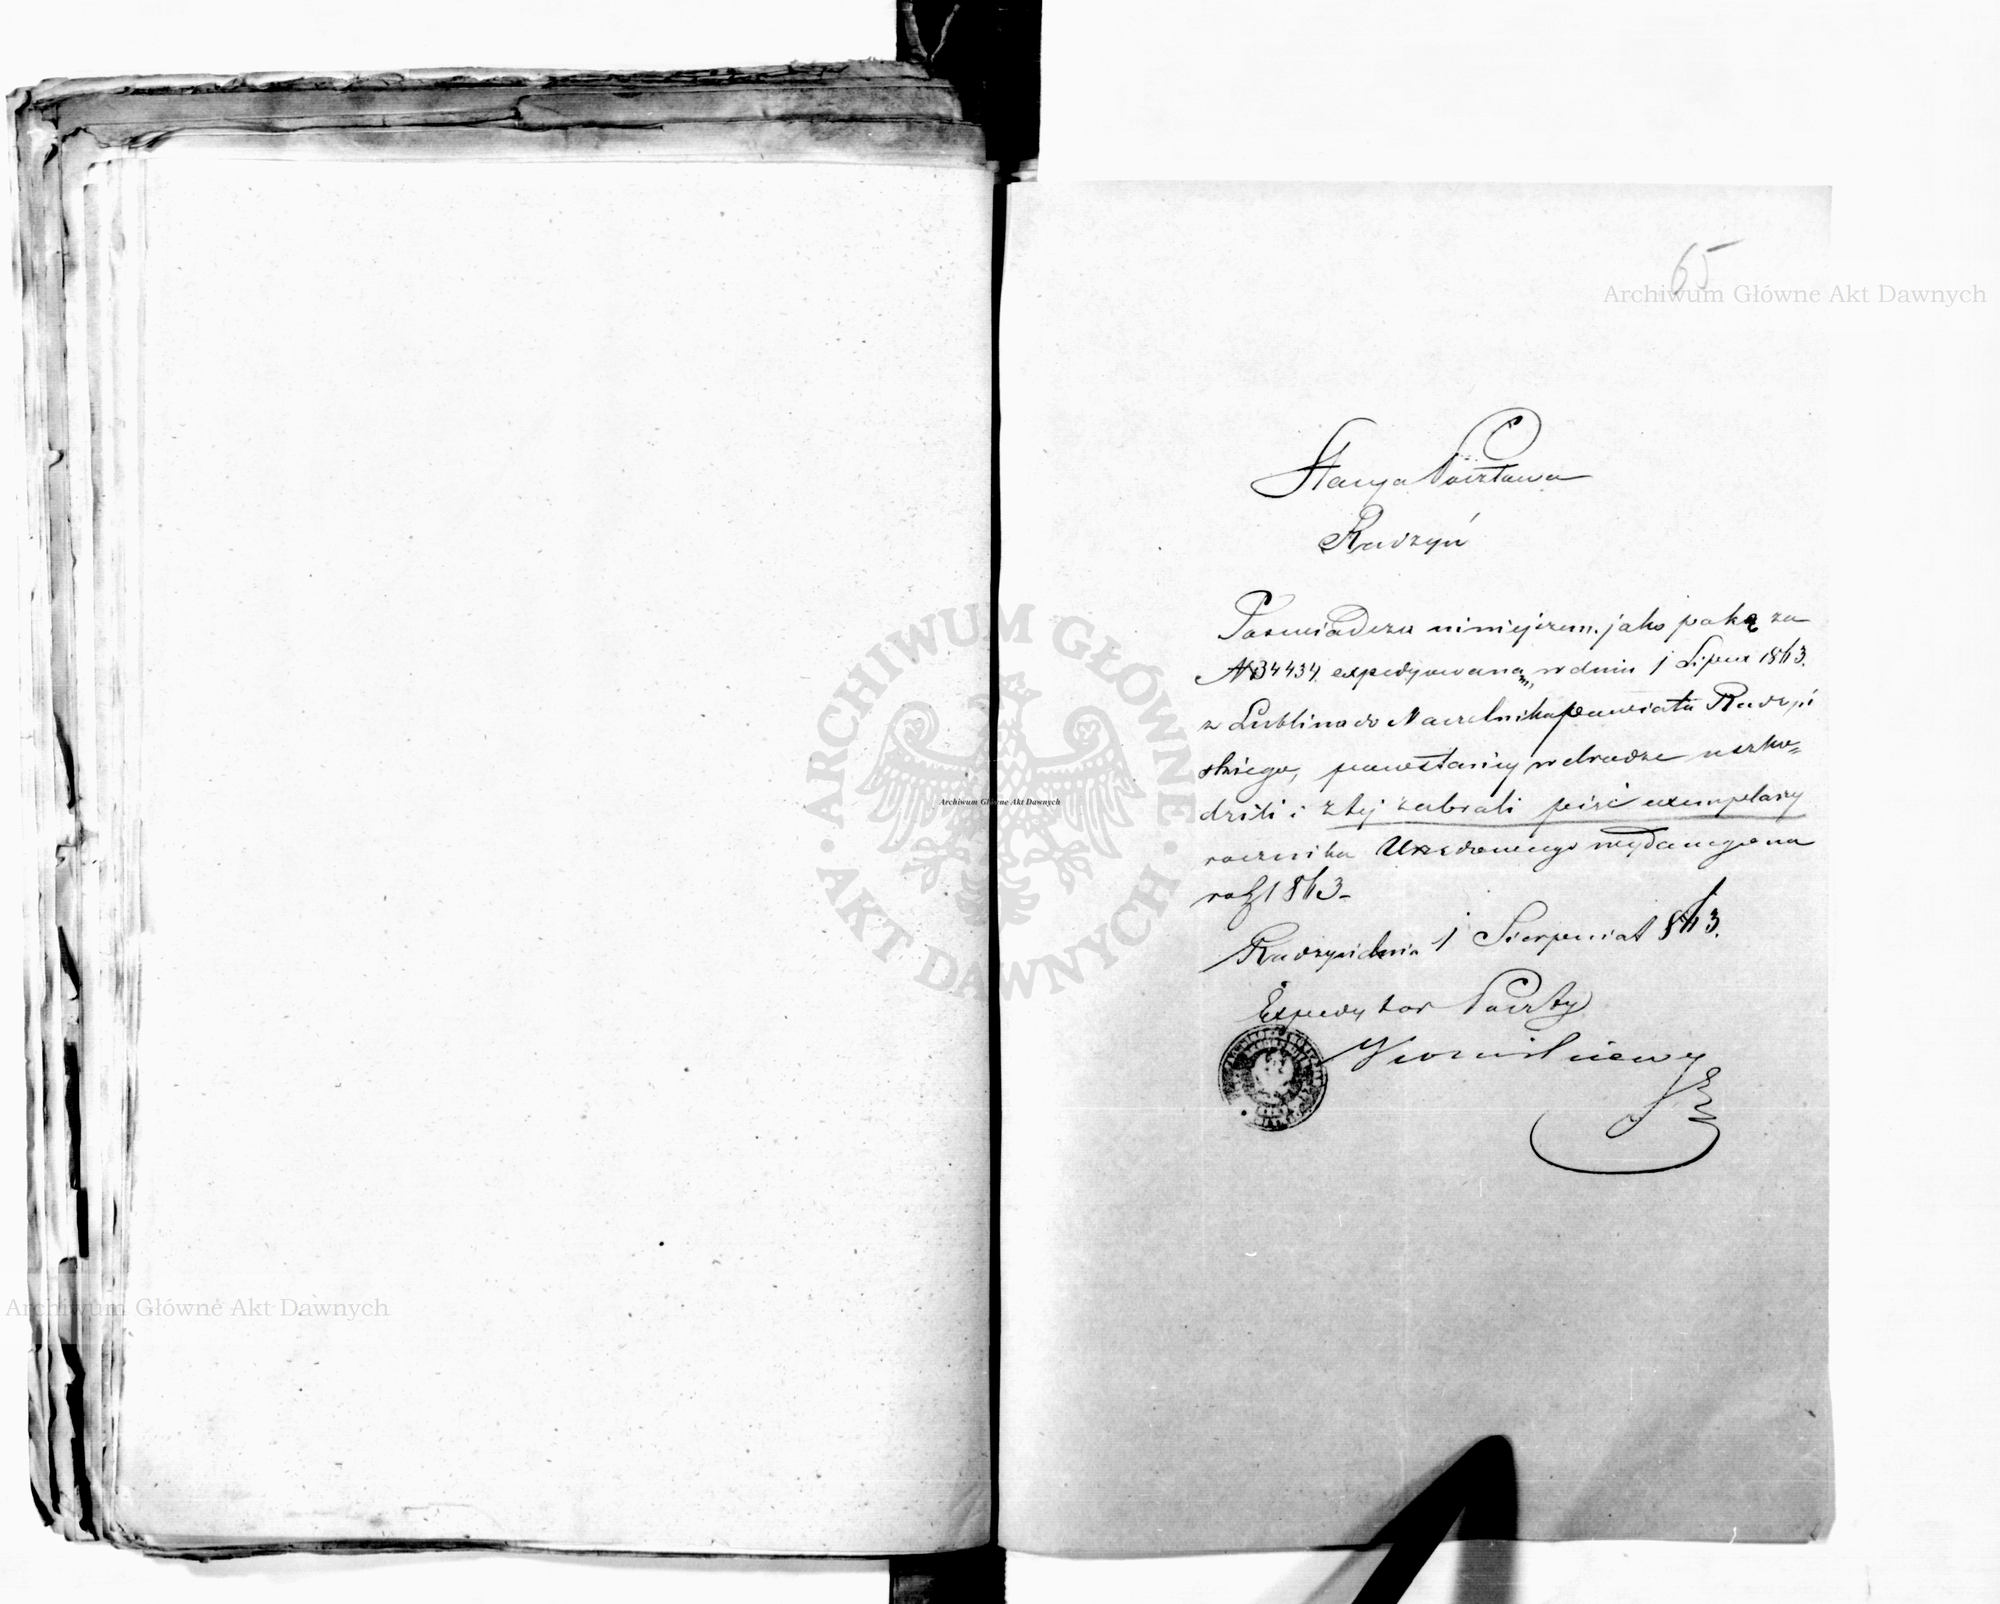 65
Archiwum Główne Akt Dawnych
Stacya Pocztowa
Radzyń
Poswiadcza niniejszem, jako pakę za
N 34434 expedyowaną w dniu 1 Lipca 1863.
z Lublina do Naczelnika powiatu Radzyń
skiego, powstańcy w drodze uszko=
dzili i z tej zabrali pięć exemplarzy
rocznika Urzędowego wydanego na
rok 1863 -
Radzyń dnia 1 Sierpnia 1863.
Expedytor Poczty
ARCHIWUM GŁÓWNE
AKT DAWNYCH
Archiwum Główne Akt Dawnych
Archiwum Główne Akt Dawnych